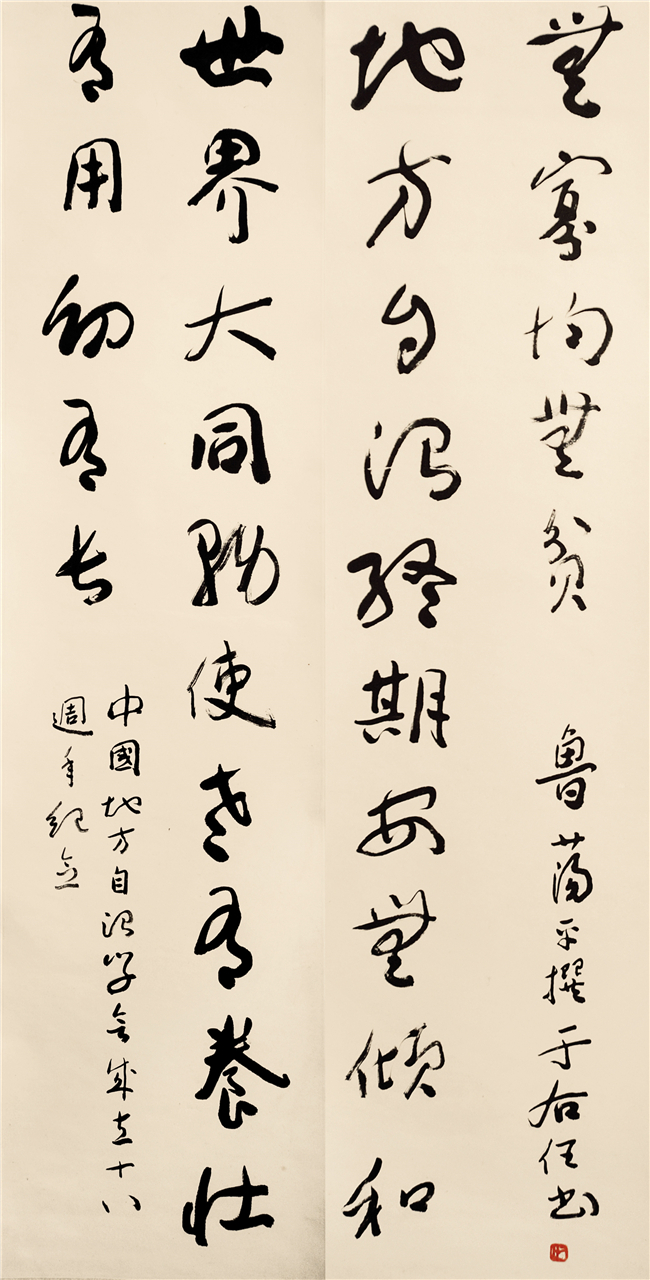 世界大同務使老有養壯
有用幼有長
中國地方自治學會成立十八
週年紀念
地方自治總期安無傾和
無寡均無貧
魯蕩平撰于右任書